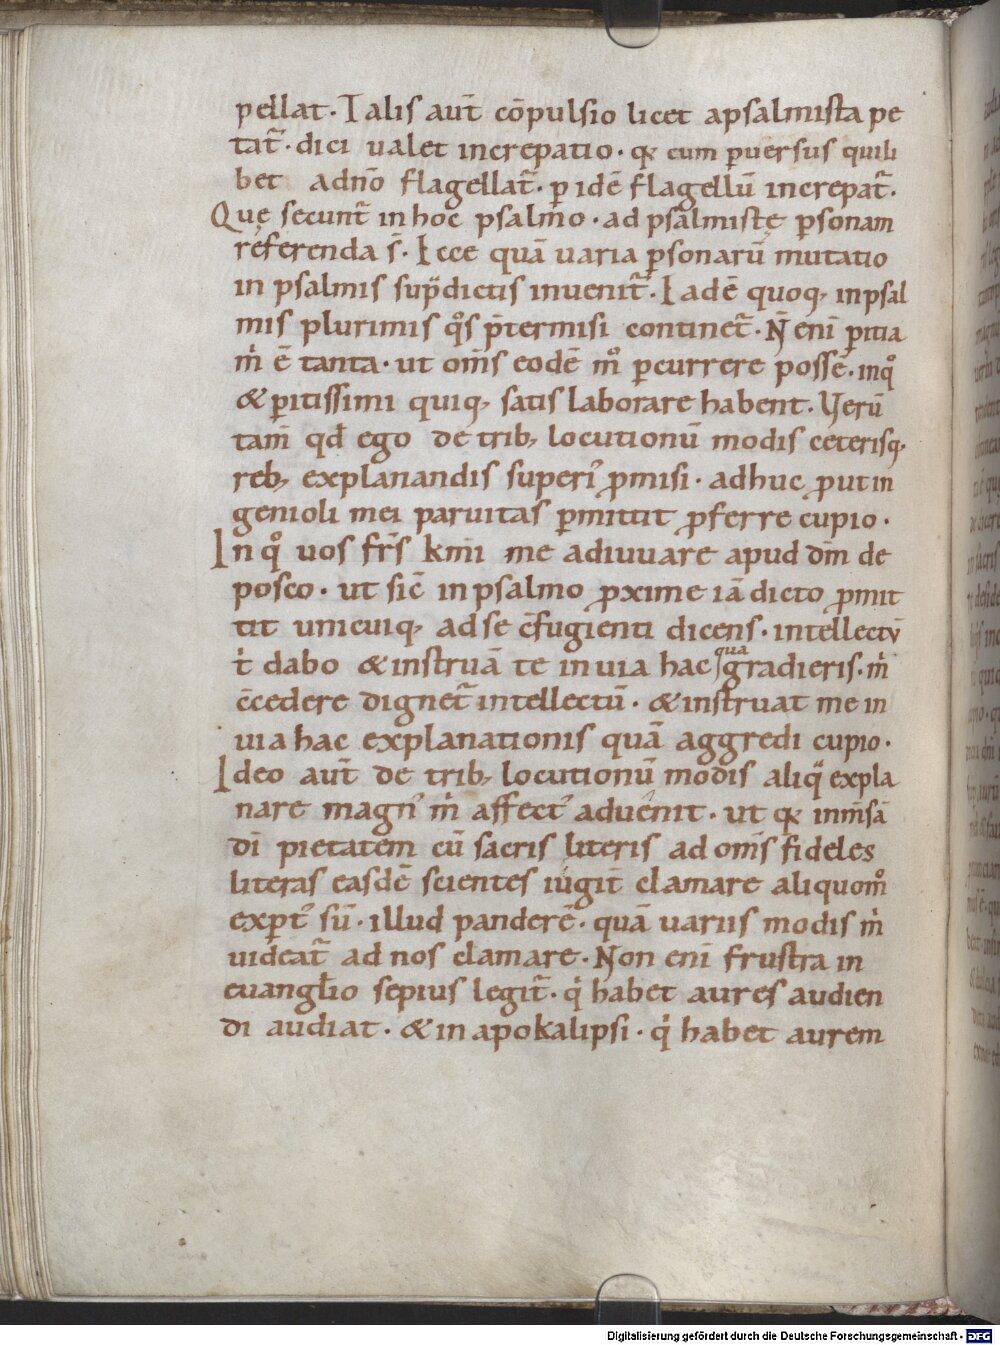 pellat· Talis aut̄ cōpulsio licet apsalmista pe
tat᷑· dici ualet increpatio· qꝛ cum ꝑuersus quili
bet adnōo flagellat᷑· ꝑ idē flagellū increpat᷑·
Quę secunt᷑ in hoc psalmo· ad psalmistę ꝑsonam
referenda s̄· Ecce quā uaria ꝑsonarū mutatio
in psalmis sup̄dictis inuenit᷑· Eadē quoq; inpsal
mis plurimis qͦs p̄termisi continet᷑· N̄ eni ꝑitia
m̍ ē tanta· ut om̄s eodē mͦ ꝑcurrere possē· inqͦ
& ꝑitissimi quiq; satis laborare habent. Verū
tam̄ qđ ego de trib; locutionū modis ceterisq;
reb; explanandis superi᾽ ꝓmisi· adhuc ꝓut in
genioli mei paruitas ꝑmittit ꝓferre cupio·
In qͦ uos fr̄s km̄i me adiuuare apud dm̄ de
posco· ut sic̄ in psalmo ꝓxime iā dicto ꝓmit
tit unicuiq; ad se c̄fugienti dicens· intellectū
t̍ dabo & instruā te in uia hac qua gradieris· m̍
c̄cedere dignet᷑ intellectū· & instruat me in
uia hac explanationis quā aggredi cupio·
Ideo aut̄ de trib; locutionū modis aliqͣ expla
nare magn᾽ m̍ affect᾽ aduenit· ut qꝛ inm̄sā
dī pietatem cū sacris literis ad om̄s fideles
literas easdē scientes iugit̄ clamare aliquomͦ
exꝑt᾽ sū· illud panderē· quā uariis modis m̍
uideat᷑ ad nos clamare· Non eni frustra in
euanglio sepius legit᷑· q̍ habet aures audien
di audiat· & in apokalipsi· q̍ habet aurem
Digitalisierung gefördert durch die Deutsche Forschungsgemeinschaft - DFG